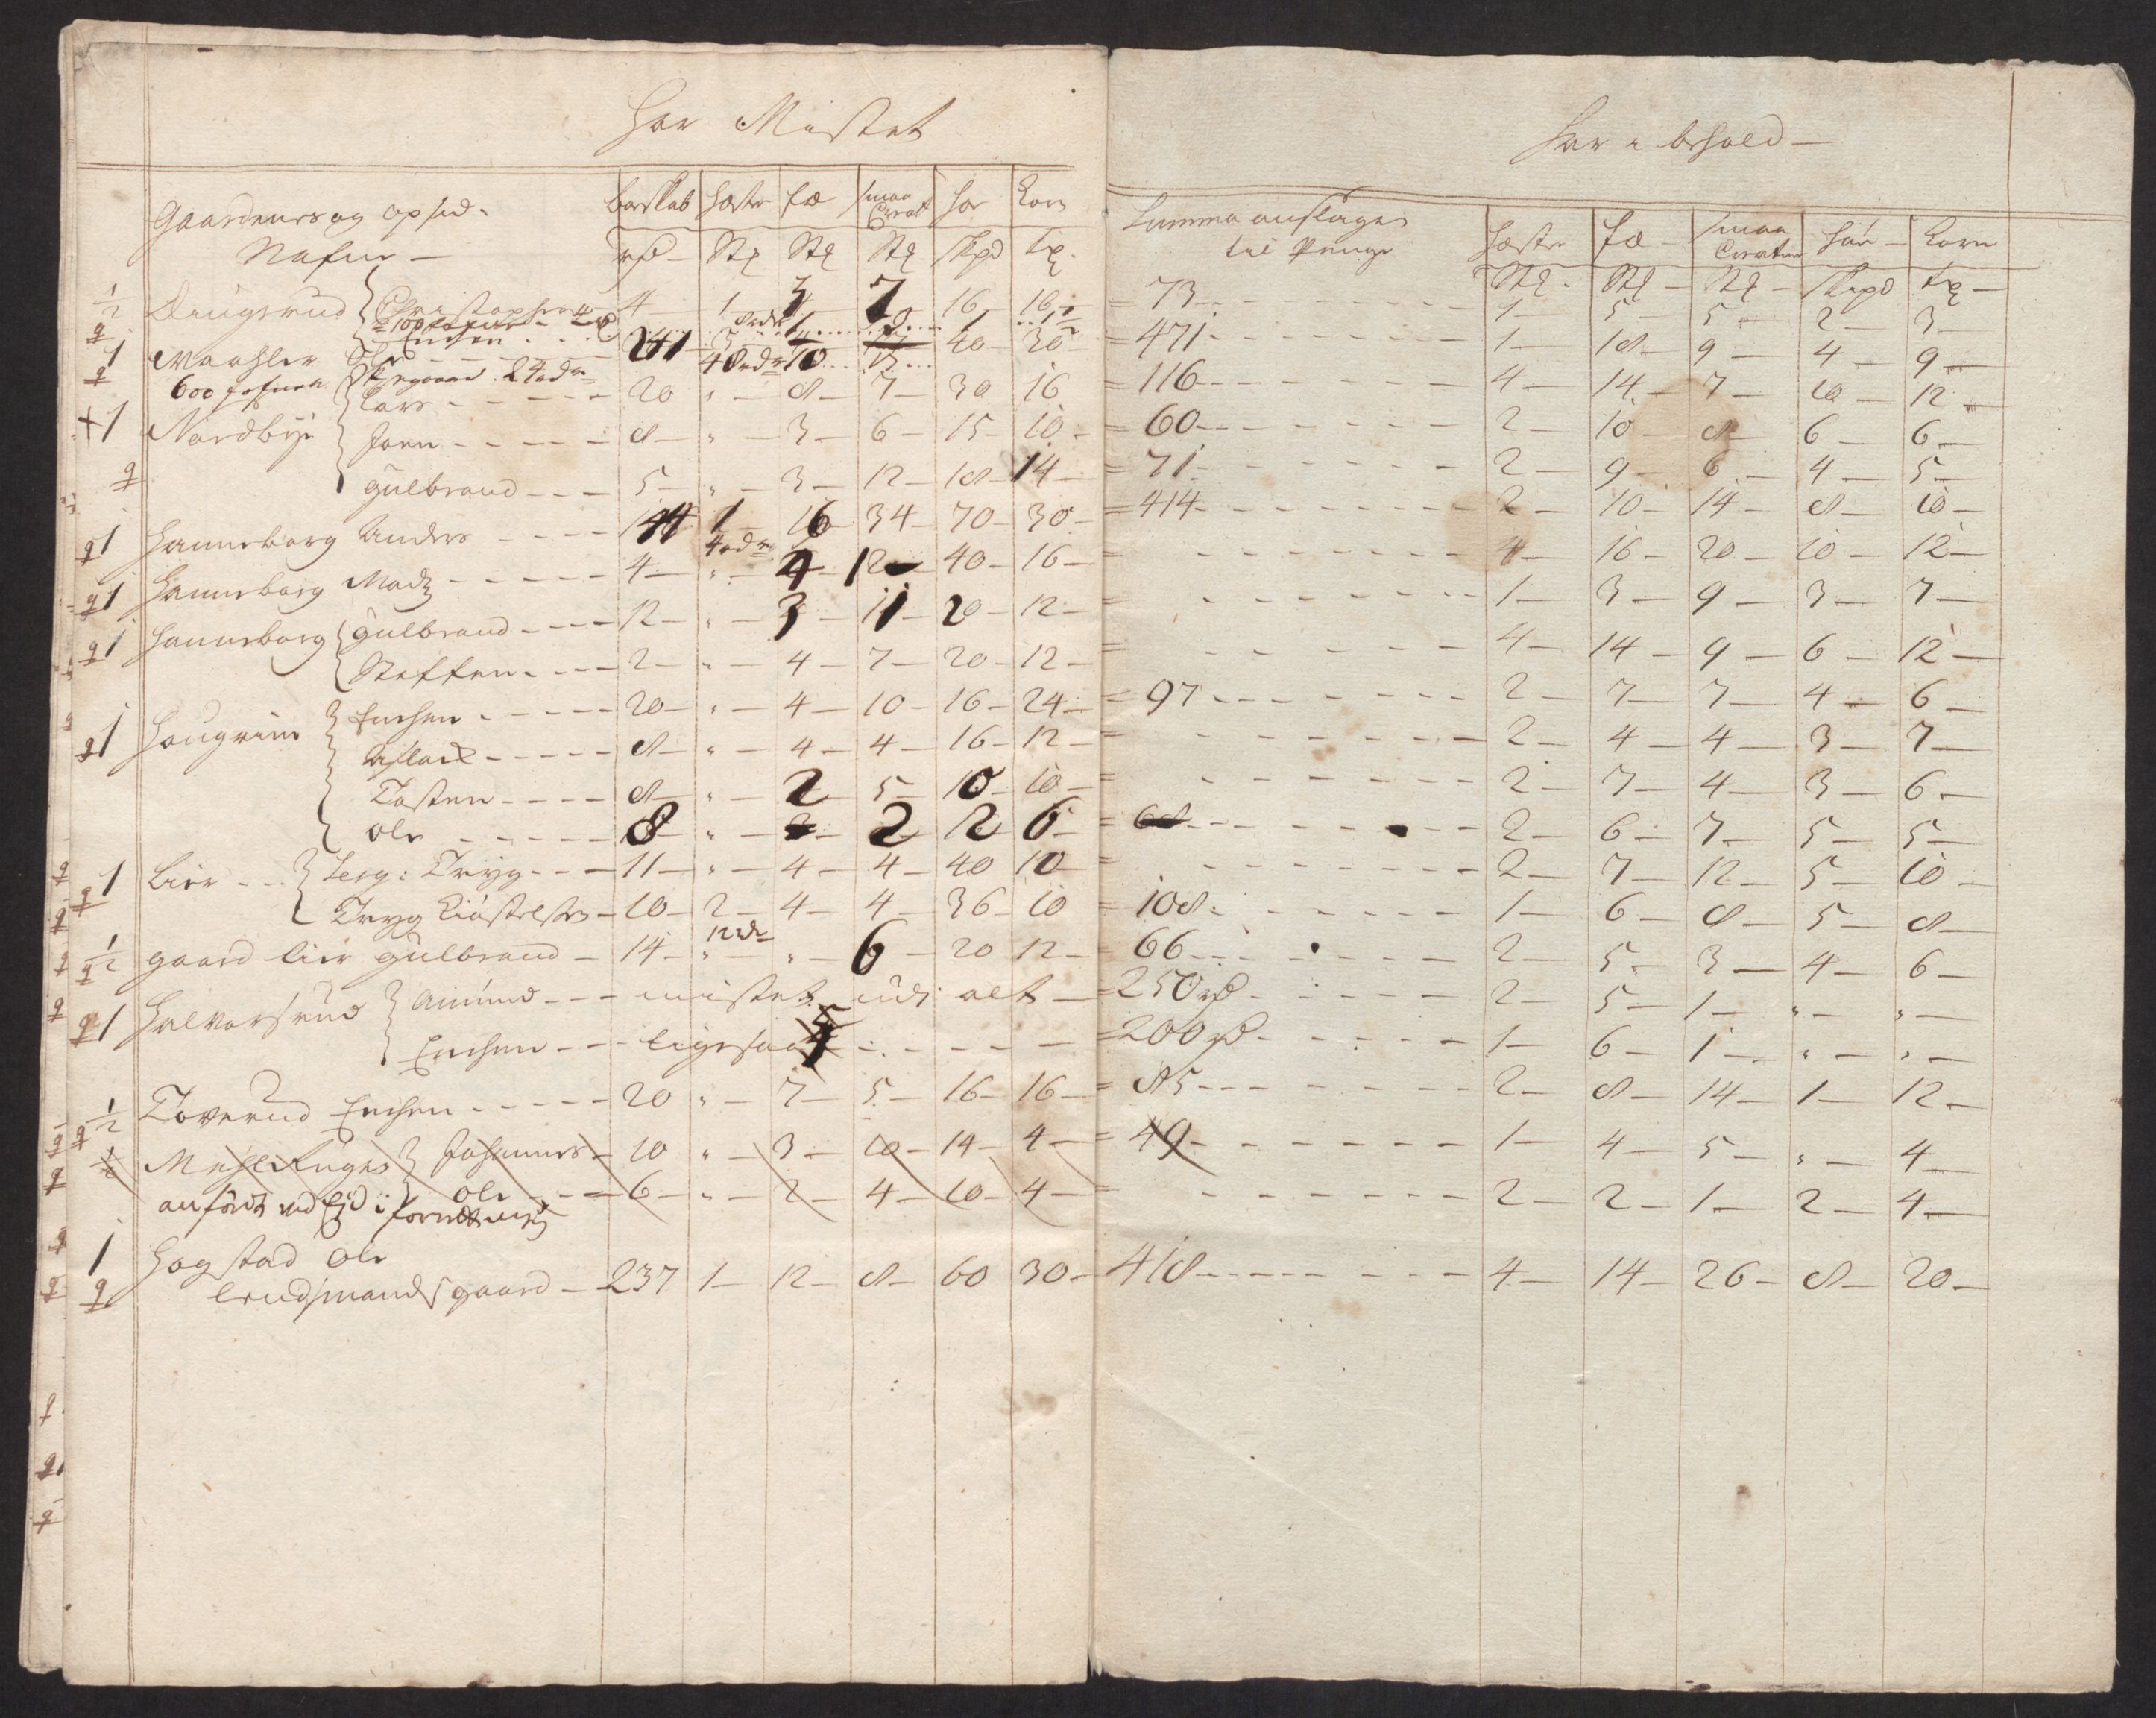 Har Mistet
Gaardenes og opsid. Boeskab Hæster Fæ smaa Creat Hør Korn
Nafne — rd — St St St skpd Tr
1/2 Diugerud Christopher 4 — 1 — 3 7 16 — 16
Erichsen
1 Waahler Ole 241 — 3 — 10 40 — 20 —
600 Lars — 20 " — 8 — 7 — 30 16
+1 Nordbye Joen — 8 — " — 3 — 6 — 15 — 10 —
Gulbrand — 5 — " — 3 — 12 — 18 — 14 —
1 Hanneborg Anders — 144 1 — 16 34 — 70 — 30 —
1 Hanneborg Madz — 4 — " — 4 12 — 40 — 16 —
1 Hanneborg Gulbrand — 12 — " — 3 — 11 — 20 — 12 —
Steffen — 2 — " — 4 — 7 — 20 — 12 —
1 Hougrim Erichsen — 20 — " — 4 — 10 — 16 — 24 —
Aslack — 8 — " — 4 — 4 — 16 — 12 —
Tosten — 8 — " — 2 — 5 — 10 — 10 —
Ole — 8 — " — 2 12 6 —
1 Lier Terg: Tryg — 11 — " — 4 — 4 — 40 10 —
Tryg — 10 — 2 — 4 — 4 — 36 — 10
1/2 gaard lier Gulbrand — 14 — " — " — 6 — 20 12 —
1 Halvorsrud Amund — mistet udi alt —
Erichsen — ligesaa
1/2 Toverud Erichsen — 20 " — 7 — 5 — 16 — 16 —
Johannes — 10 " — 3 — 10 — 14 — 4 —
Ole — 6 — " — 2 — 4 — 10 — 4 —
anført ved Eid i
1 Hogstad Ole
lendsmands gaard — 237 1 — 12 — 8 — 60 30 —
Har i behold —
Summa anslaget til Penge Hæster Fæ — smaa Creature Høe — Korn
St — St — St — Skpd Tr —
= 73 — 1 — 5 — 5 — 2 — 3 —
= 471 — 1 — 18 — 9 — 4 — 9 —
= 116 — 4 — 14 — 7 — 10 — 12 —
= 60 — 2 — 10 8 — 6 — 6 —
= 71 — 2 — 9 — 6 — 4 — 5 —
= 414 — 2 — 10 — 14 — 8 — 10 —
= — 4 — 16 — 20 — 10 — 12 —
= — 1 — 3 — 9 — 3 — 7 —
= — 4 — 14 — 9 — 6 — 12 —
= 97 — 2 — 7 — 7 — 4 — 6 —
= — 2 — 4 — 4 — 3 — 7 —
= — 2 — 7 — 4 — 3 — 6 —
= 68 — 2 — 6 — 7 — 5 — 5 —
= — 2 — 7 — 12 — 5 — 10 —
= 108 — 1 — 6 — 8 — 5 — 8 —
= 66 — 2 — 5 — 3 — 4 — 6 —
= 250 rd — 2 — 5 — 1 — " — " —
= 200 rd — 1 — 6 — 1 — " — " —
= 85 — 2 — 8 — 14 — 1 — 12 —
= 49 — 1 — 4 — 5 — " — 4 —
= — 2 — 2 — 1 — 2 — 4 —
418 — 4 — 14 — 26 — 8 — 20 —